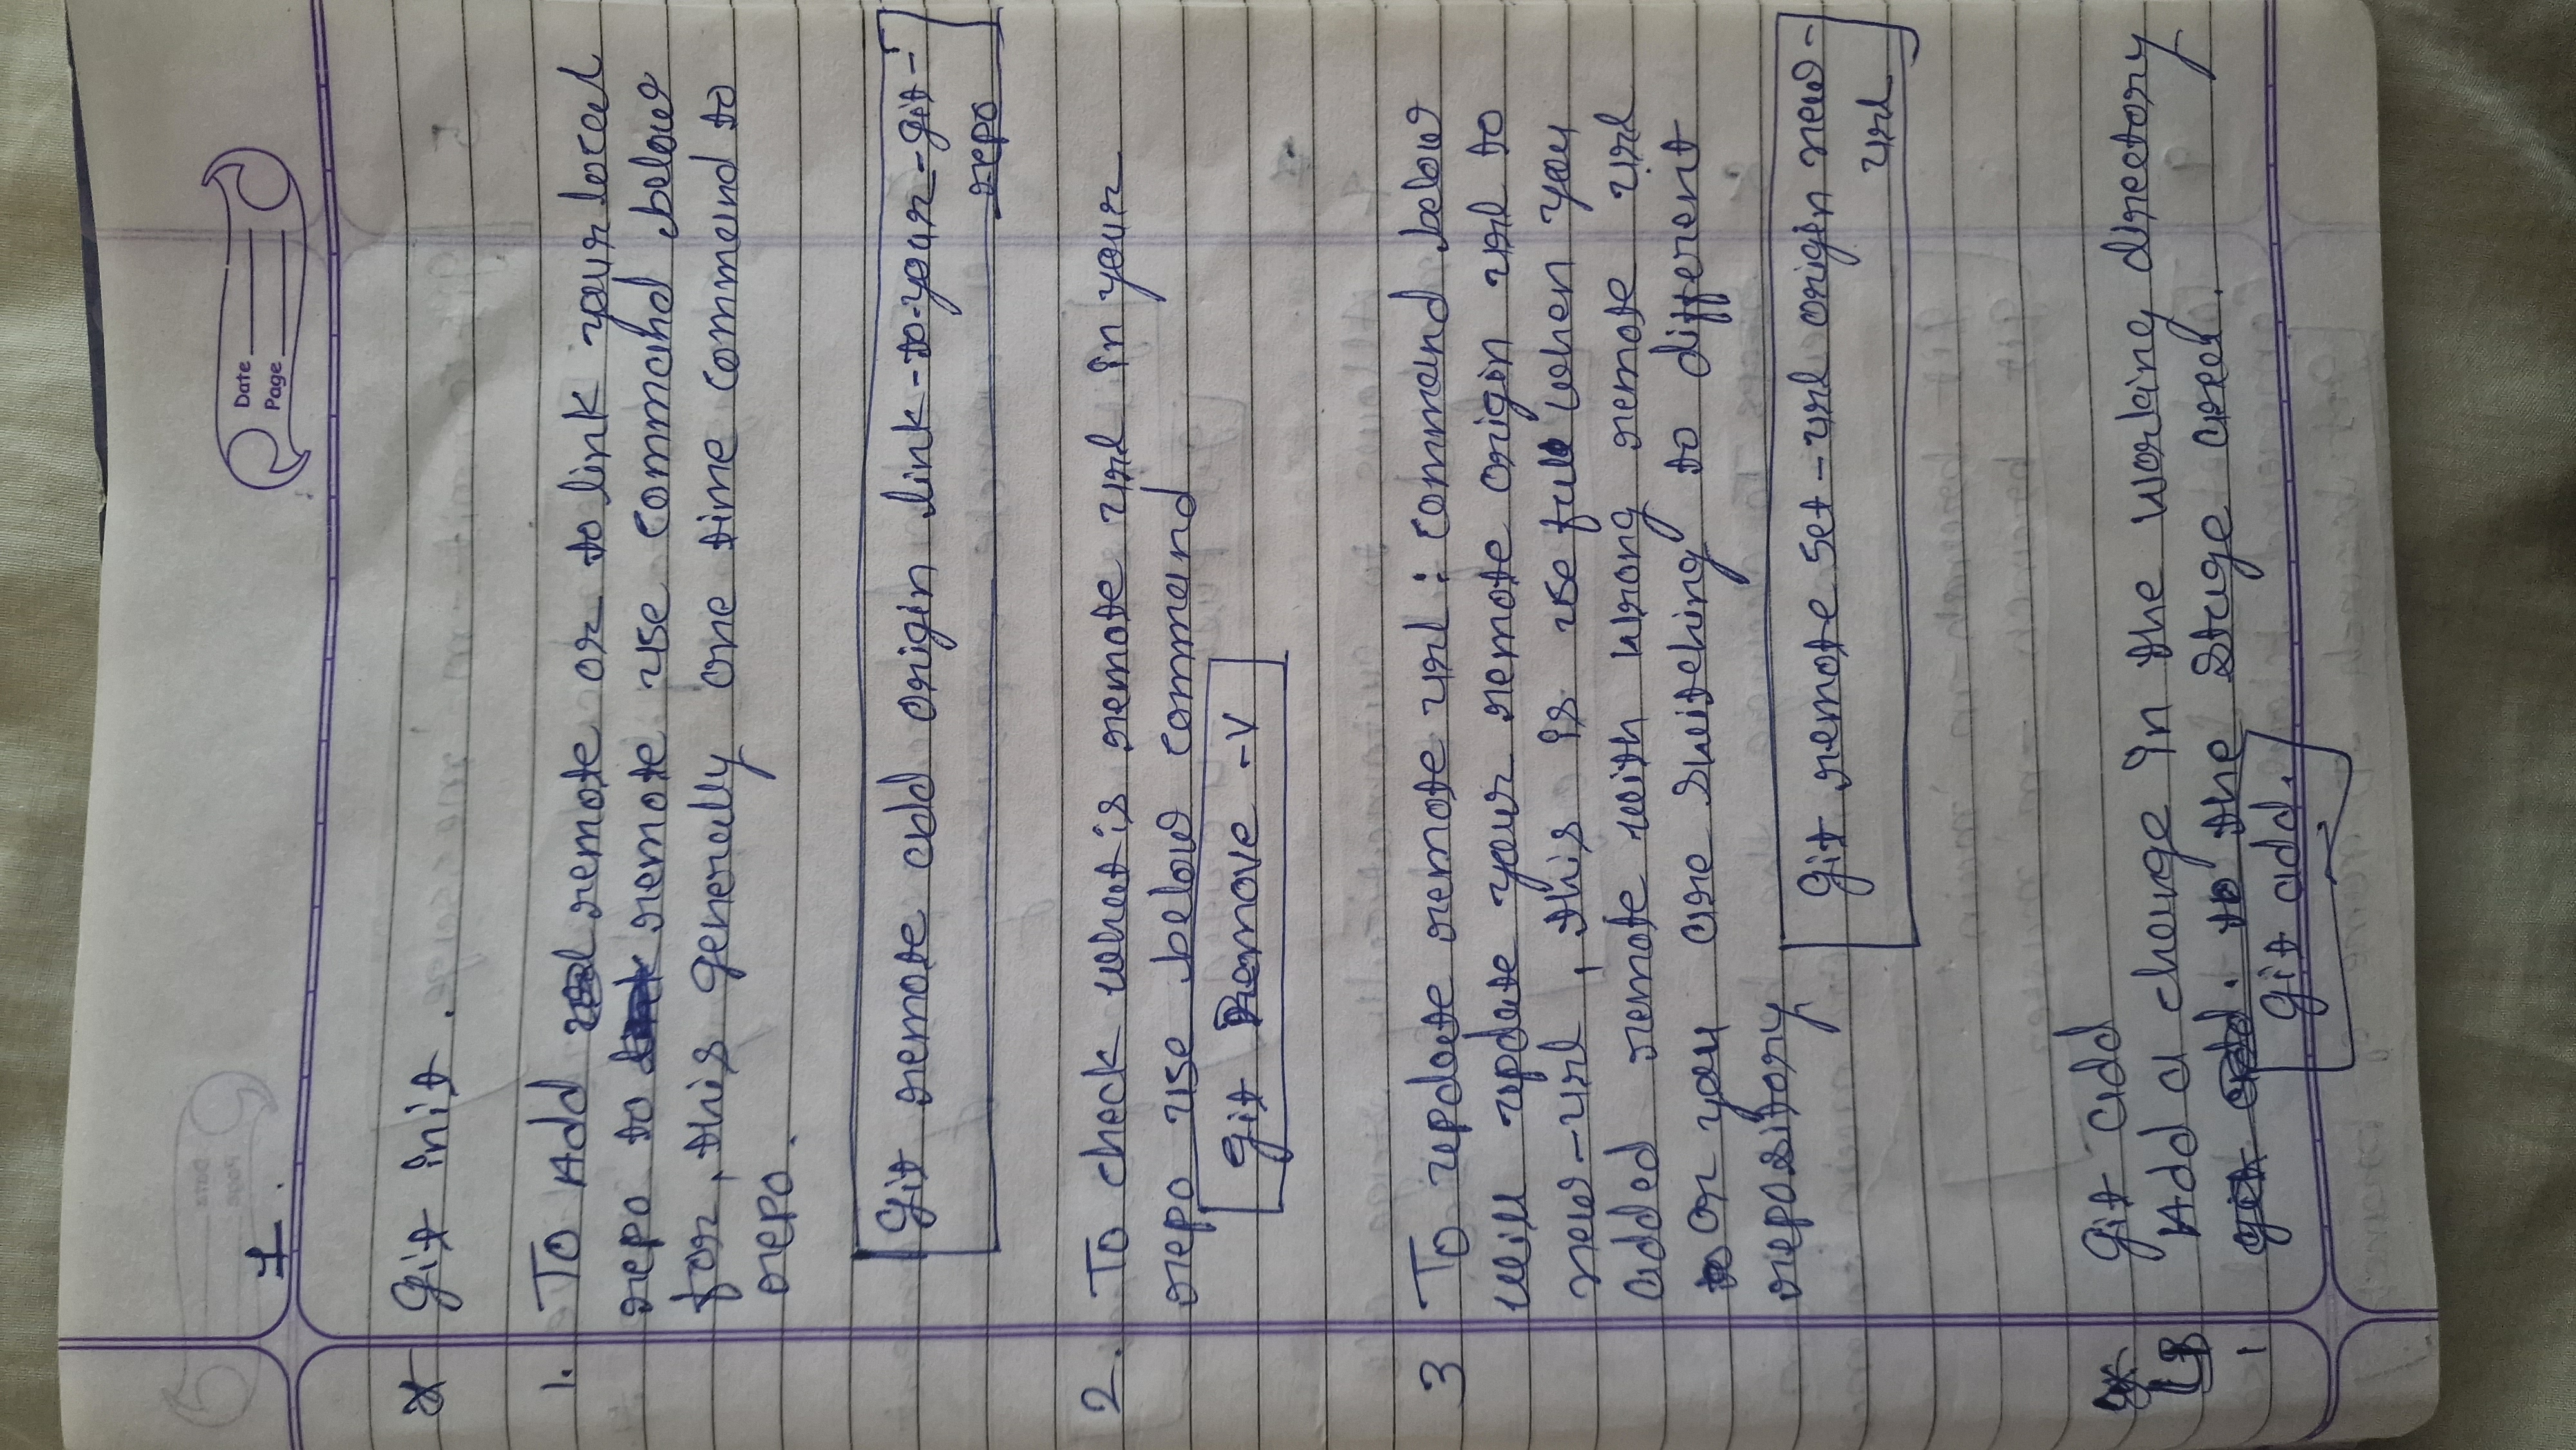 Date
Page
1.
* git init.
1. To Add remote or to link your local
repo to remote use command below
for, this generally one time command to
repo.
git remote add origin link-to-your-git-
repo
2. To check what is remote url in your
repo use below command
git Remove -v
3 To update remote url : command below
will update your remote origin url to
new-url, this is use full when you
added remote with wrong remote url
or you are switching to different
repository
git remote set-url origin new-
url
* git add
Add a change in the working directory
1 to the stage area.
git add.